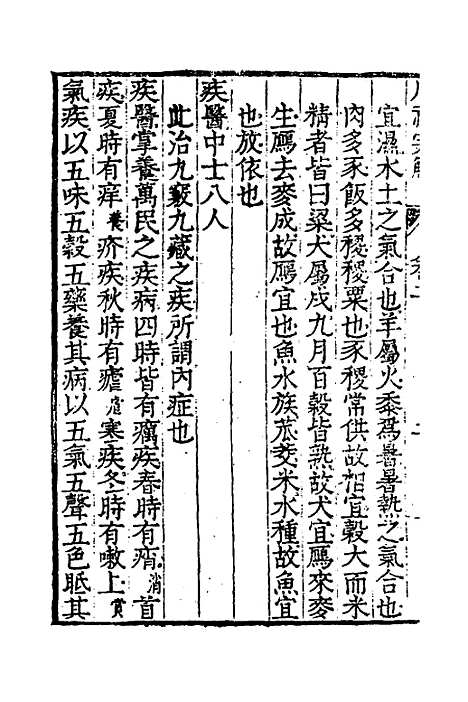 宜濕水土之氣合也羊屬火黍爲暑暑熱之氣合也
肉多豕飯多稷稷粟也豕稷常供故相宜穀大而米
精者皆曰粱犬屬戌九月百穀皆熟故犬宜鴈來麥
生鴈去麥成故鴈宜也魚水族苽茭米水種故魚宜
也放依也
疾醫中士八人
此治九竅九藏之疾所謂內症也
疾醫掌養萬民之疾病四時皆有癘疾春時有痟消首
疾夏時有痒養疥疾秋時有瘧虐寒疾冬時有嗽上賞
氣疾以五味五穀五藥養其病以五氣五聲五色眡其